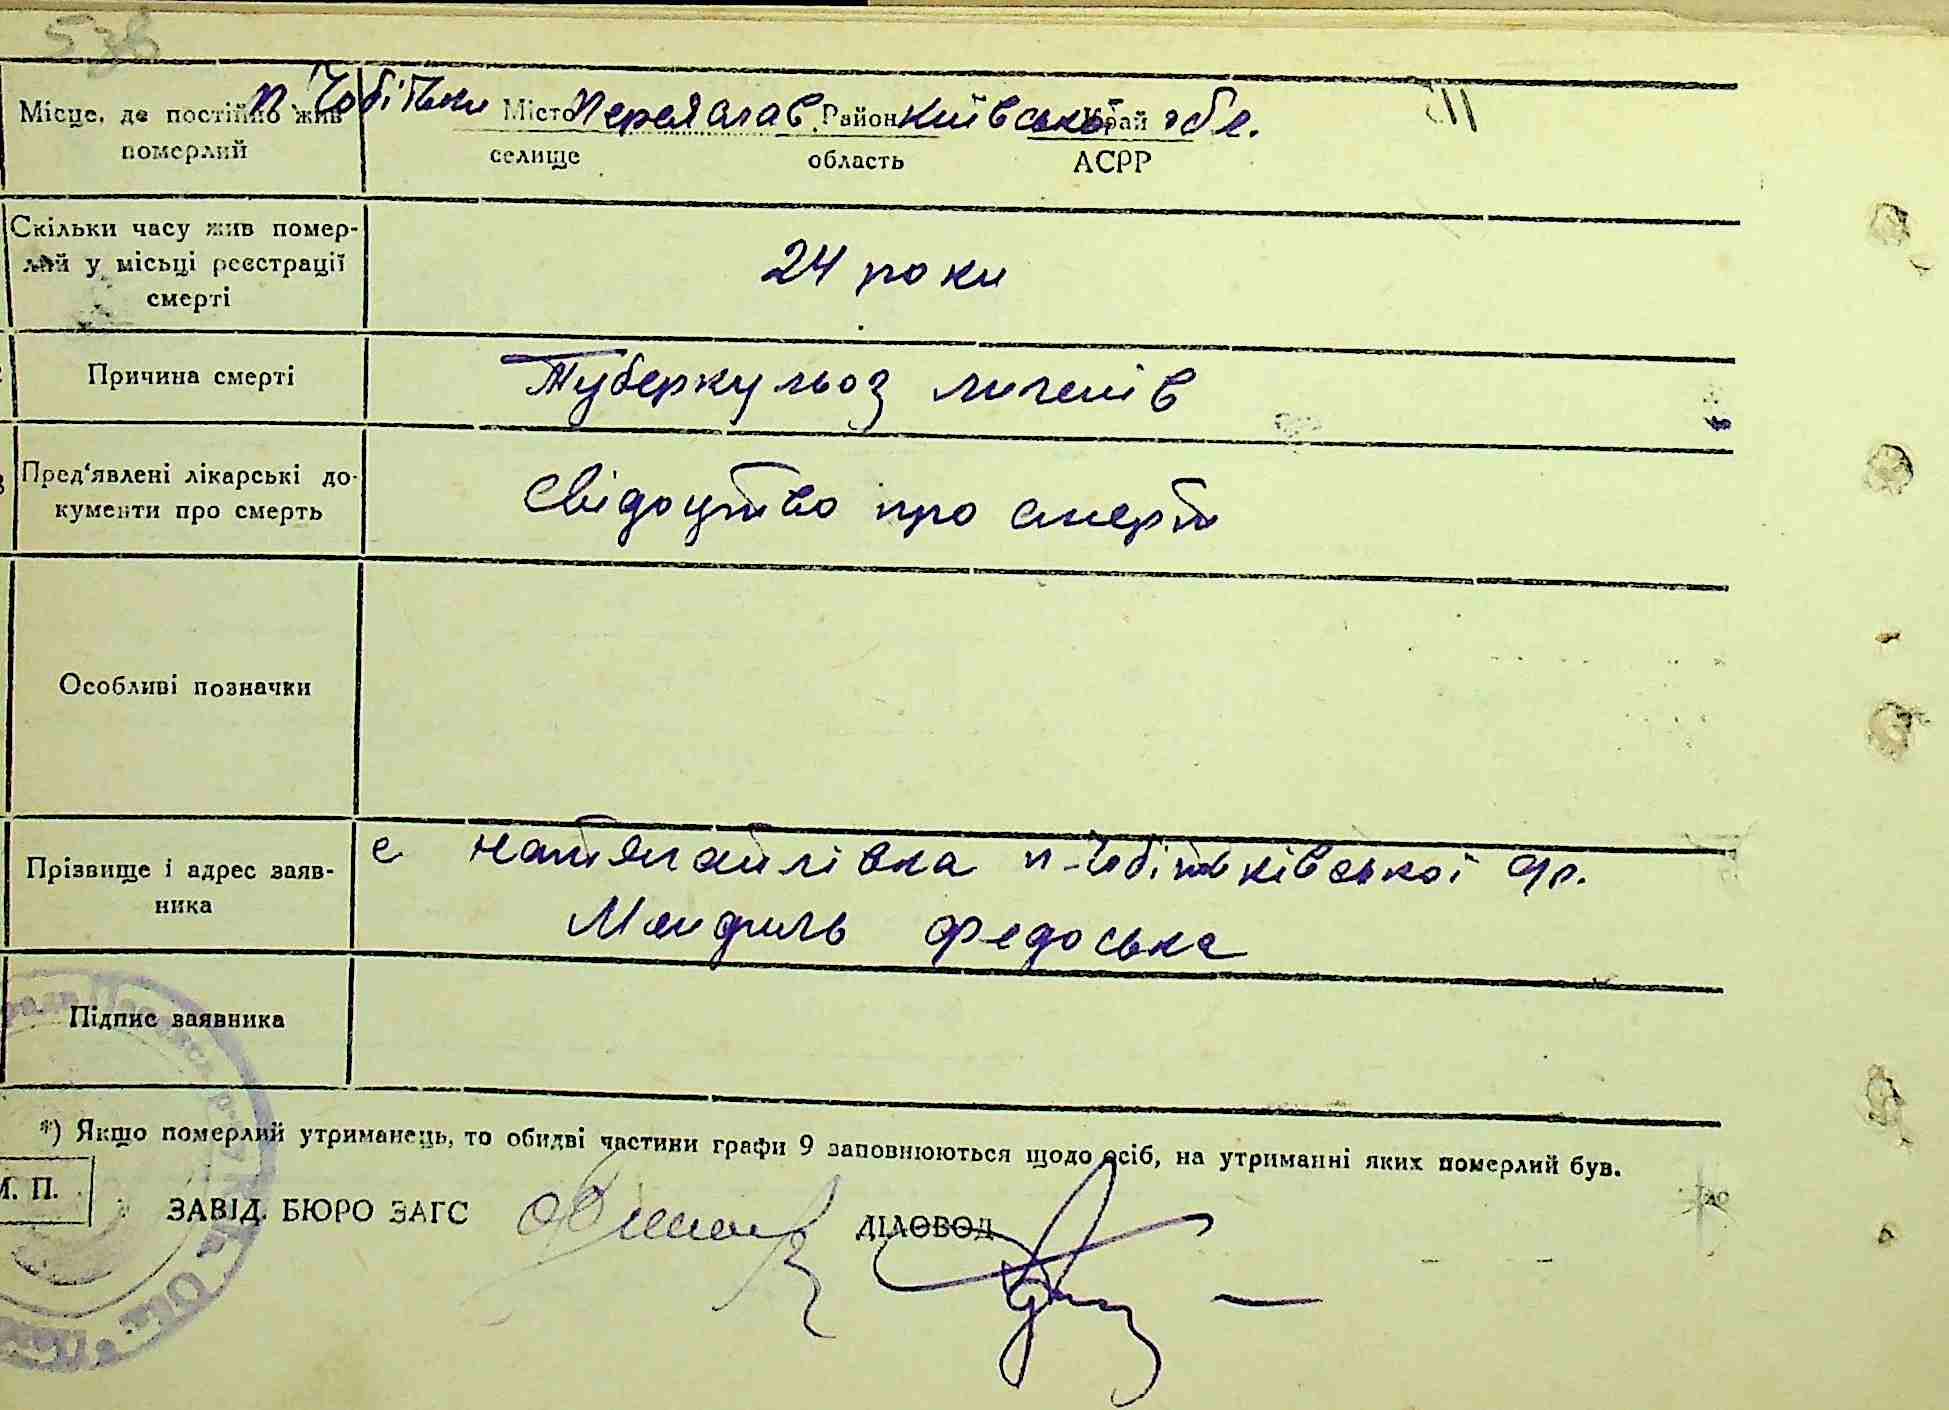 538
Місце, де постійно жив померлий
п-Чобітьки Місто Переяслав Район Київської Край обл.
селище область АСРР
Скільки часу жив помер-
лий у місьці реєстрації
смерті
24 роки
Причина смерті
Туберкульоз лигенів
Пред'явлені лікарські до-
кументи про смерть
Свідоцтво про смерть
Особливі позначки
Прізвище і адрес заяв-
ника
с Натягайлівка п-Чобітьківської
Федоська
Підпис заявника
*) Якщо померлий утриманець, то обидві частини графи 9 заповнюються щодо осіб, на утриманні яких померлий був.
М. П.
ЗАВІД. БЮРО ЗАГС ДІЛОВОД